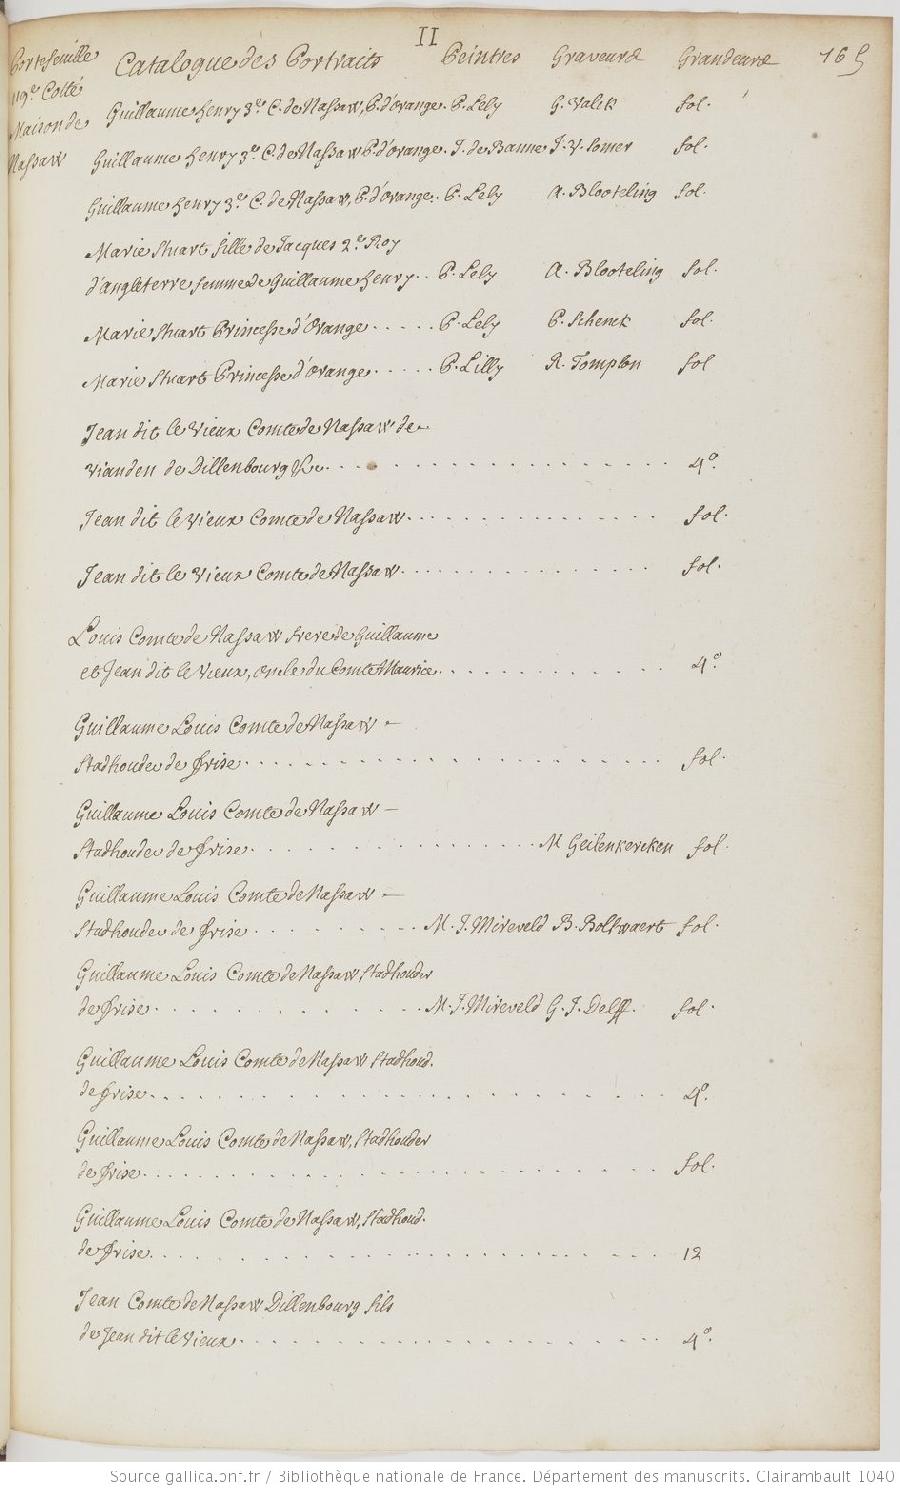 II
Portefeuille
119e Cotté
Maison de
Nassaw
Catalogue des Portraits Peintres Graveurs Grandeurs 165
Guillaume henry 3e C. de Nassaw, P. d'orange. P. Lely G. Valck fol.
Guillaume henry 3e C. de Nassaw P. d'orange. J. de Banne J. V. Somer fol.
Guillaume henry 3e C. de Nassaw, P. d'orange. P. Lely A. Blooteling fol.
Marie Stuart fille de Jacques 2e Roy
d'angleterre femme de Guillaume henry.. P. Lely A. Blooteling fol.
Marie Stuart Princesse d'Orange..... P. Lely P. Schenck fol.
Marie Stuart Princesse d'orange..... P. Lilly R. Tompson fol
Jean dit le vieux Comte de Nassaw de
Vianden de Dillenbourg &c. 4o.
Jean dit le vieux Comte de Nassaw. fol.
Jean dit le vieux Comte de Nassaw. fol.
Louis Comte de Nassaw frere de Guillaume
et Jean dit le vieux, oncle du Comte Maurice. 4o.
Guillaume Louis Comte de Nassaw -
Stadhouder de frise. fol.
Guillaume Louis Comte de Nassaw -
Stadhouder de frise. M Geilenkercken fol.
Guillaume Louis Comte de Nassaw -
Stadhouder de frise. M. J. Mireveld B. Bolswaert fol.
Guillaume Louis Comte de Nassaw, Stadhouder
de frise. M. J. Mireveld G. J. Delff. fol.
Guillaume Louis Comte de Nassaw Stadhoud.
de frise. 4o.
Guillaume Louis Comte de Nassaw, Stadhouder
de frise. fol.
Guillaume Louis Comte de Nassaw, Stadhoud.
de frise. 12
Jean Comte de Nassaw Dillenbourg fils
de Jean dit le vieux. 4o.
Source gallica.bnf.fr / Bibliothèque nationale de France. Département des manuscrits. Clairambault 1040